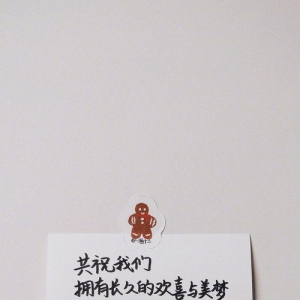 共祝我们
拥有长久的欢喜与美梦